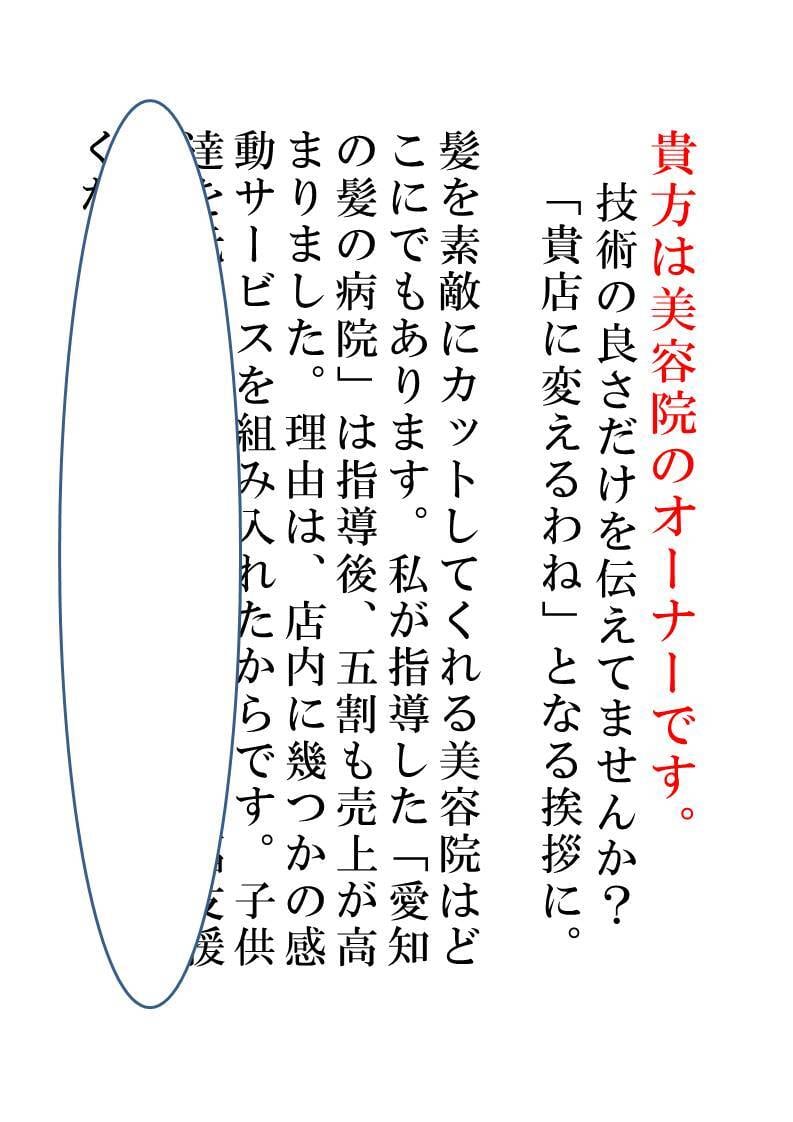 貴方は美容院のオーナーです。
技術の良さだけを伝えてませんか？
「貴店に変えるわね」となる挨拶に。
髪を素敵にカットしてくれる美容院はど
こにでもあります。私が指導した「愛知
の髪の病院」は指導後、五割も売上が高
まりました。理由は、店内に幾つかの感
動サービスを組み入れたからです。子供
達を
支援
く